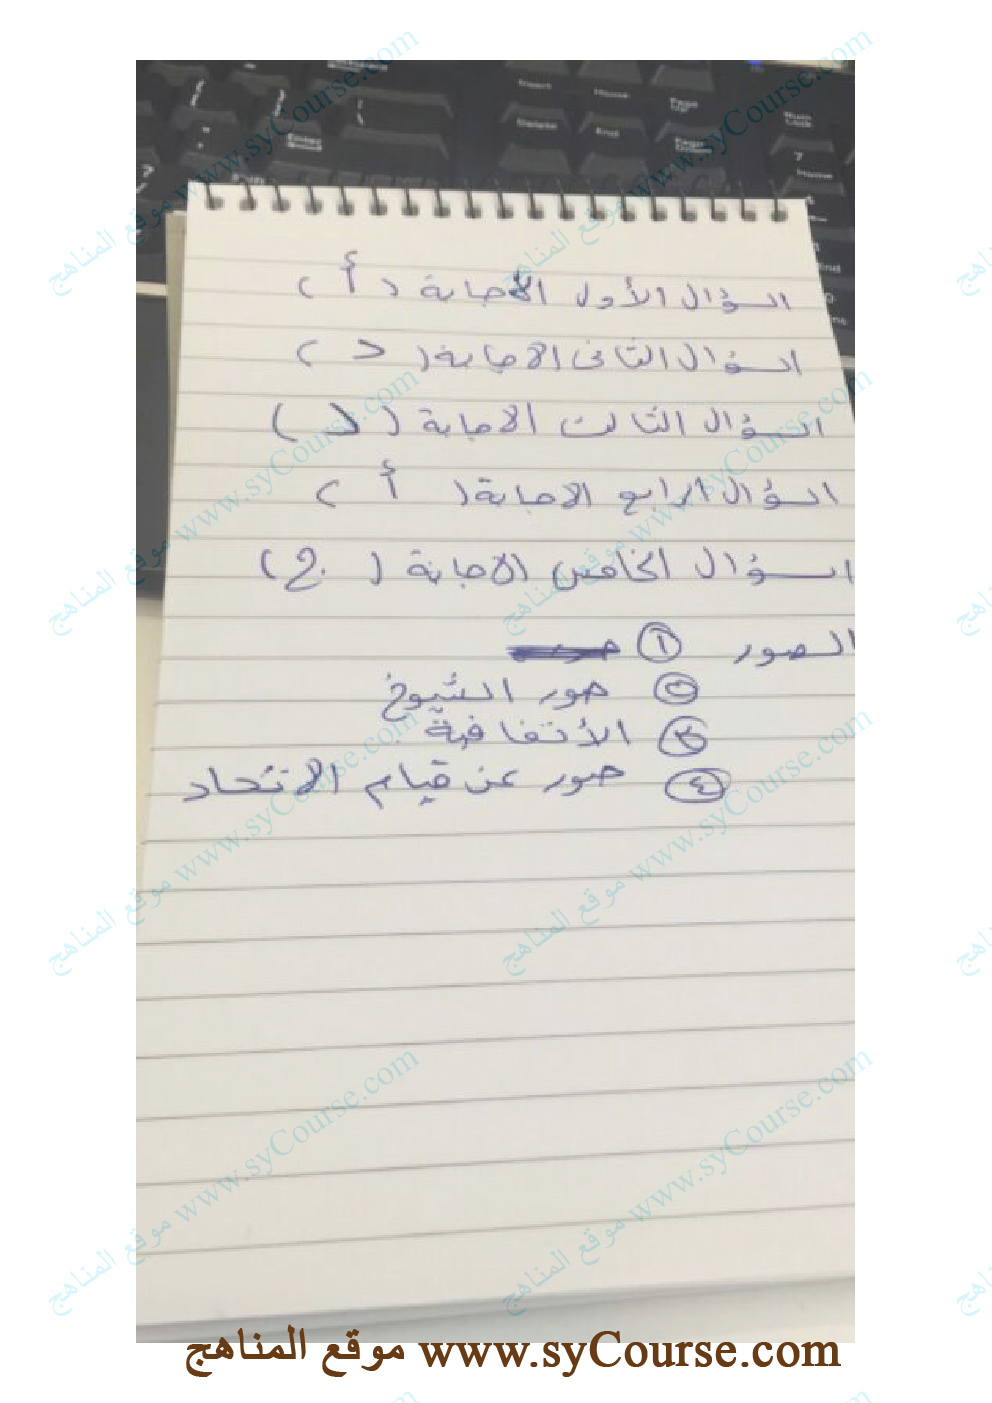 السؤال الأول الاجابة ( أ )
السؤال الثانى الاجابة ( د )
السؤال الثالث الاجابة ( د )
السؤال الرابع الاجابة ( أ )
السؤال الخامس الاجابة ( ج )
الصور ①
② صور الشيوخ
③ الأتفاقية
④ صور عن قيام الاتحاد
موقع المناهج www.syCourse.com